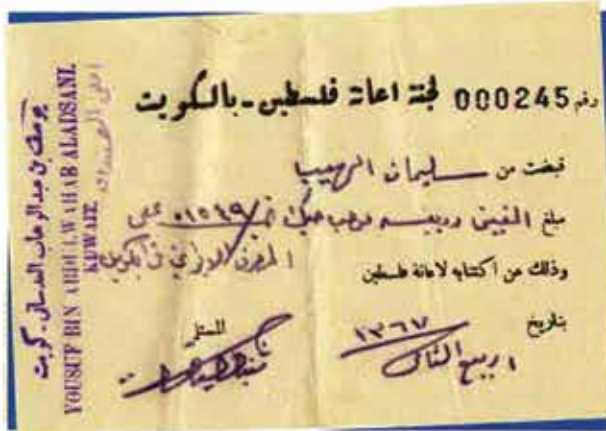 رقم 000245 لجنة اعانة فلسطين - بالكويت
قبضت من سليمان الهيب
مبلغ الفين روبيه موجب جيك نمرة ٠١٥٤٩ على
وذلك عن اكتتابه لاعانة فلسطين
بتاريخ
١ ربيع الثاني ١٣٦٧
المستلم
يوسف بن عبد الوهاب العدساني - كويت
YOUSUF BIN ABDULWAHAB ALADSANI.
KUWAIT
امين الصندوق